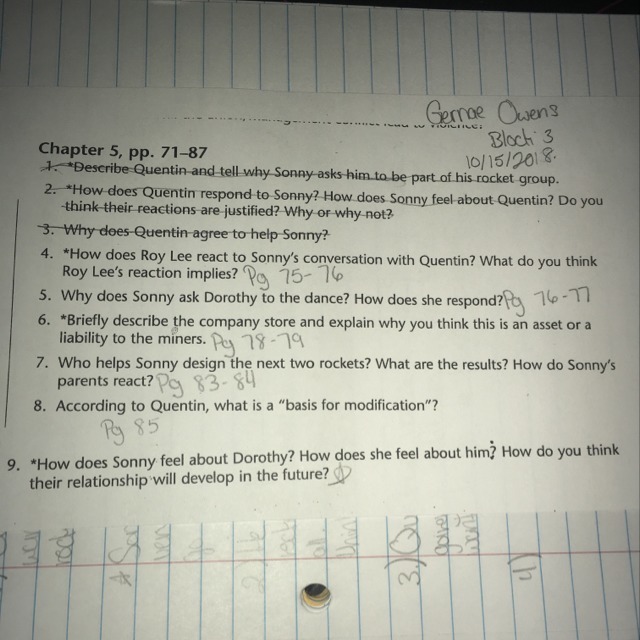 Gernae Owens
Block 3
10/15/2018.
Chapter 5, pp. 71–87
1. *Describe Quentin and tell why Sonny asks him to be part of his rocket group.
2. *How does Quentin respond to Sonny? How does Sonny feel about Quentin? Do you
think their reactions are justified? Why or why not?
3. Why does Quentin agree to help Sonny?
4. *How does Roy Lee react to Sonny's conversation with Quentin? What do you think
Roy Lee's reaction implies? Pg 75-76
5. Why does Sonny ask Dorothy to the dance? How does she respond? Pg 76-77
6. *Briefly describe the company store and explain why you think this is an asset or a
liability to the miners. Pg 78-79
7. Who helps Sonny design the next two rockets? What are the results? How do Sonny's
parents react? Pg 83-84
8. According to Quentin, what is a "basis for modification"?
Pg 85
9. *How does Sonny feel about Dorothy? How does she feel about him? How do you think
their relationship will develop in the future?
3.) Qu
4)